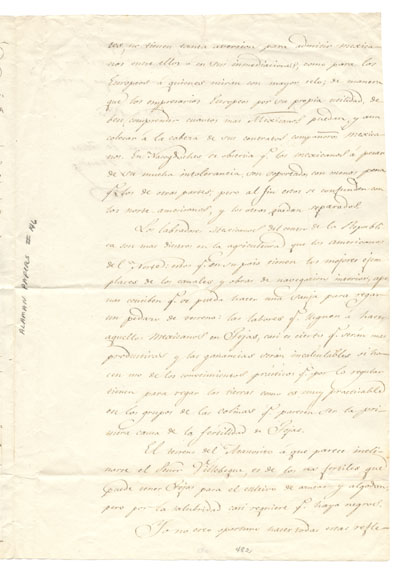 no tienen tanta aversion para admitir mexica-
nos entre ellos ó en sus inmediaciones, como para los
Europeos á quienes miran con mayor celo; de manera
que los empresarios Europeos por su propia utilidad, de-
ben comprender cuantos mas Mexicanos puedan, y aun
colocar á la cabeza de sus contratos compañeros mexica-
nos. En Nacogdoches se observa q.e los mexicanos á pesar
de su mucha intolerancia, son soportados con menos pena
q.e los de otras partes, pero al fin estos se confunden con
los norte americanos, y los otros quedan separados.
Los labradores Mexicanos del interior de la Republi-
ca son mas diestros en la agricultura que los americanos
del Norte
q.e en su pais tienen los mejores ejem-
plares de los canales y obras de navegacion interior, ape-
nas conciben q.e se puede hacer una zanja para regar
un pedazo de terreno: las labores q.e lleguen á hacer
aquellos Mexicanos en Tejas, casi es cierto q.e serán mas
productivas y las ganancias serán incalculables si hacen
uso de los conocimientos practicos q.e por lo regular
tienen para regar las tierras como es muy practicable
en los grupos de las colinas q.e parecen ser la pri-
mera causa de la fertilidad de Tejas.
El terreno del Atascosito á que parece incli-
narse el Señor Villasigue, es de los mas fertiles que
puede tener Tejas para el cultivo de azucar y algodon,
pero por la salubridad casi requiere q.e haya negros.
Ya no creo oportuno hacer todas estas refle-
ALAMAN PAPERS
482